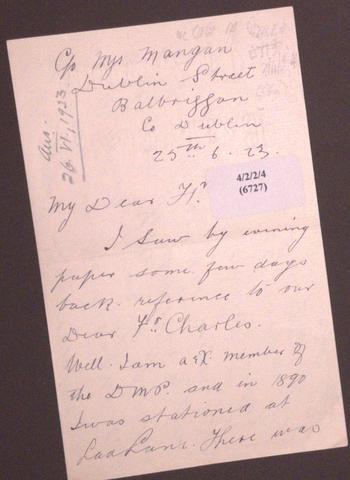 C/o Mrs Mangan
Dublin Street
Balbriggan
Co Dublin
25th 6. 23.
Ans.
26. VI. 1923
4/2/2/4
(6727)
My Dear Fr
I saw by evening
paper some few days
back. reference to our
Dear Fr Charles.
Well. I am a eX. member of
the D.M.P. and in 1890
I was stationed at
There was